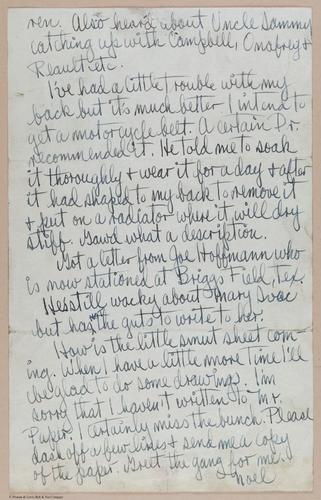 ren. Also heard about Uncle Sammy
catching up with Campbell, Onofrey &
Reault etc.
I've had a little trouble with my
back but it's much better I intend to
get a motorcycle belt. A certain Dr.
recommended it. He told me to soak
it thoroughly & wear it for a day & after
it had shaped to my back to remove it
& put on a radiator where it will dry
stiff. Gawd what a description.
Got a letter from Joe Hoffmann who
is now stationed at Briggs Field, Tex.
He still wacky about Mary
but has not the guts to write to her.
How is the little smut sheet com-
ing. When I have a little more time I'll
be glad to do some drawings. I'm
sorry that I haven't written to Mr.
I certainly miss the bunch. Please
dash off a few lines & send me a copy
of the paper. Greet the gang for me.
Noel